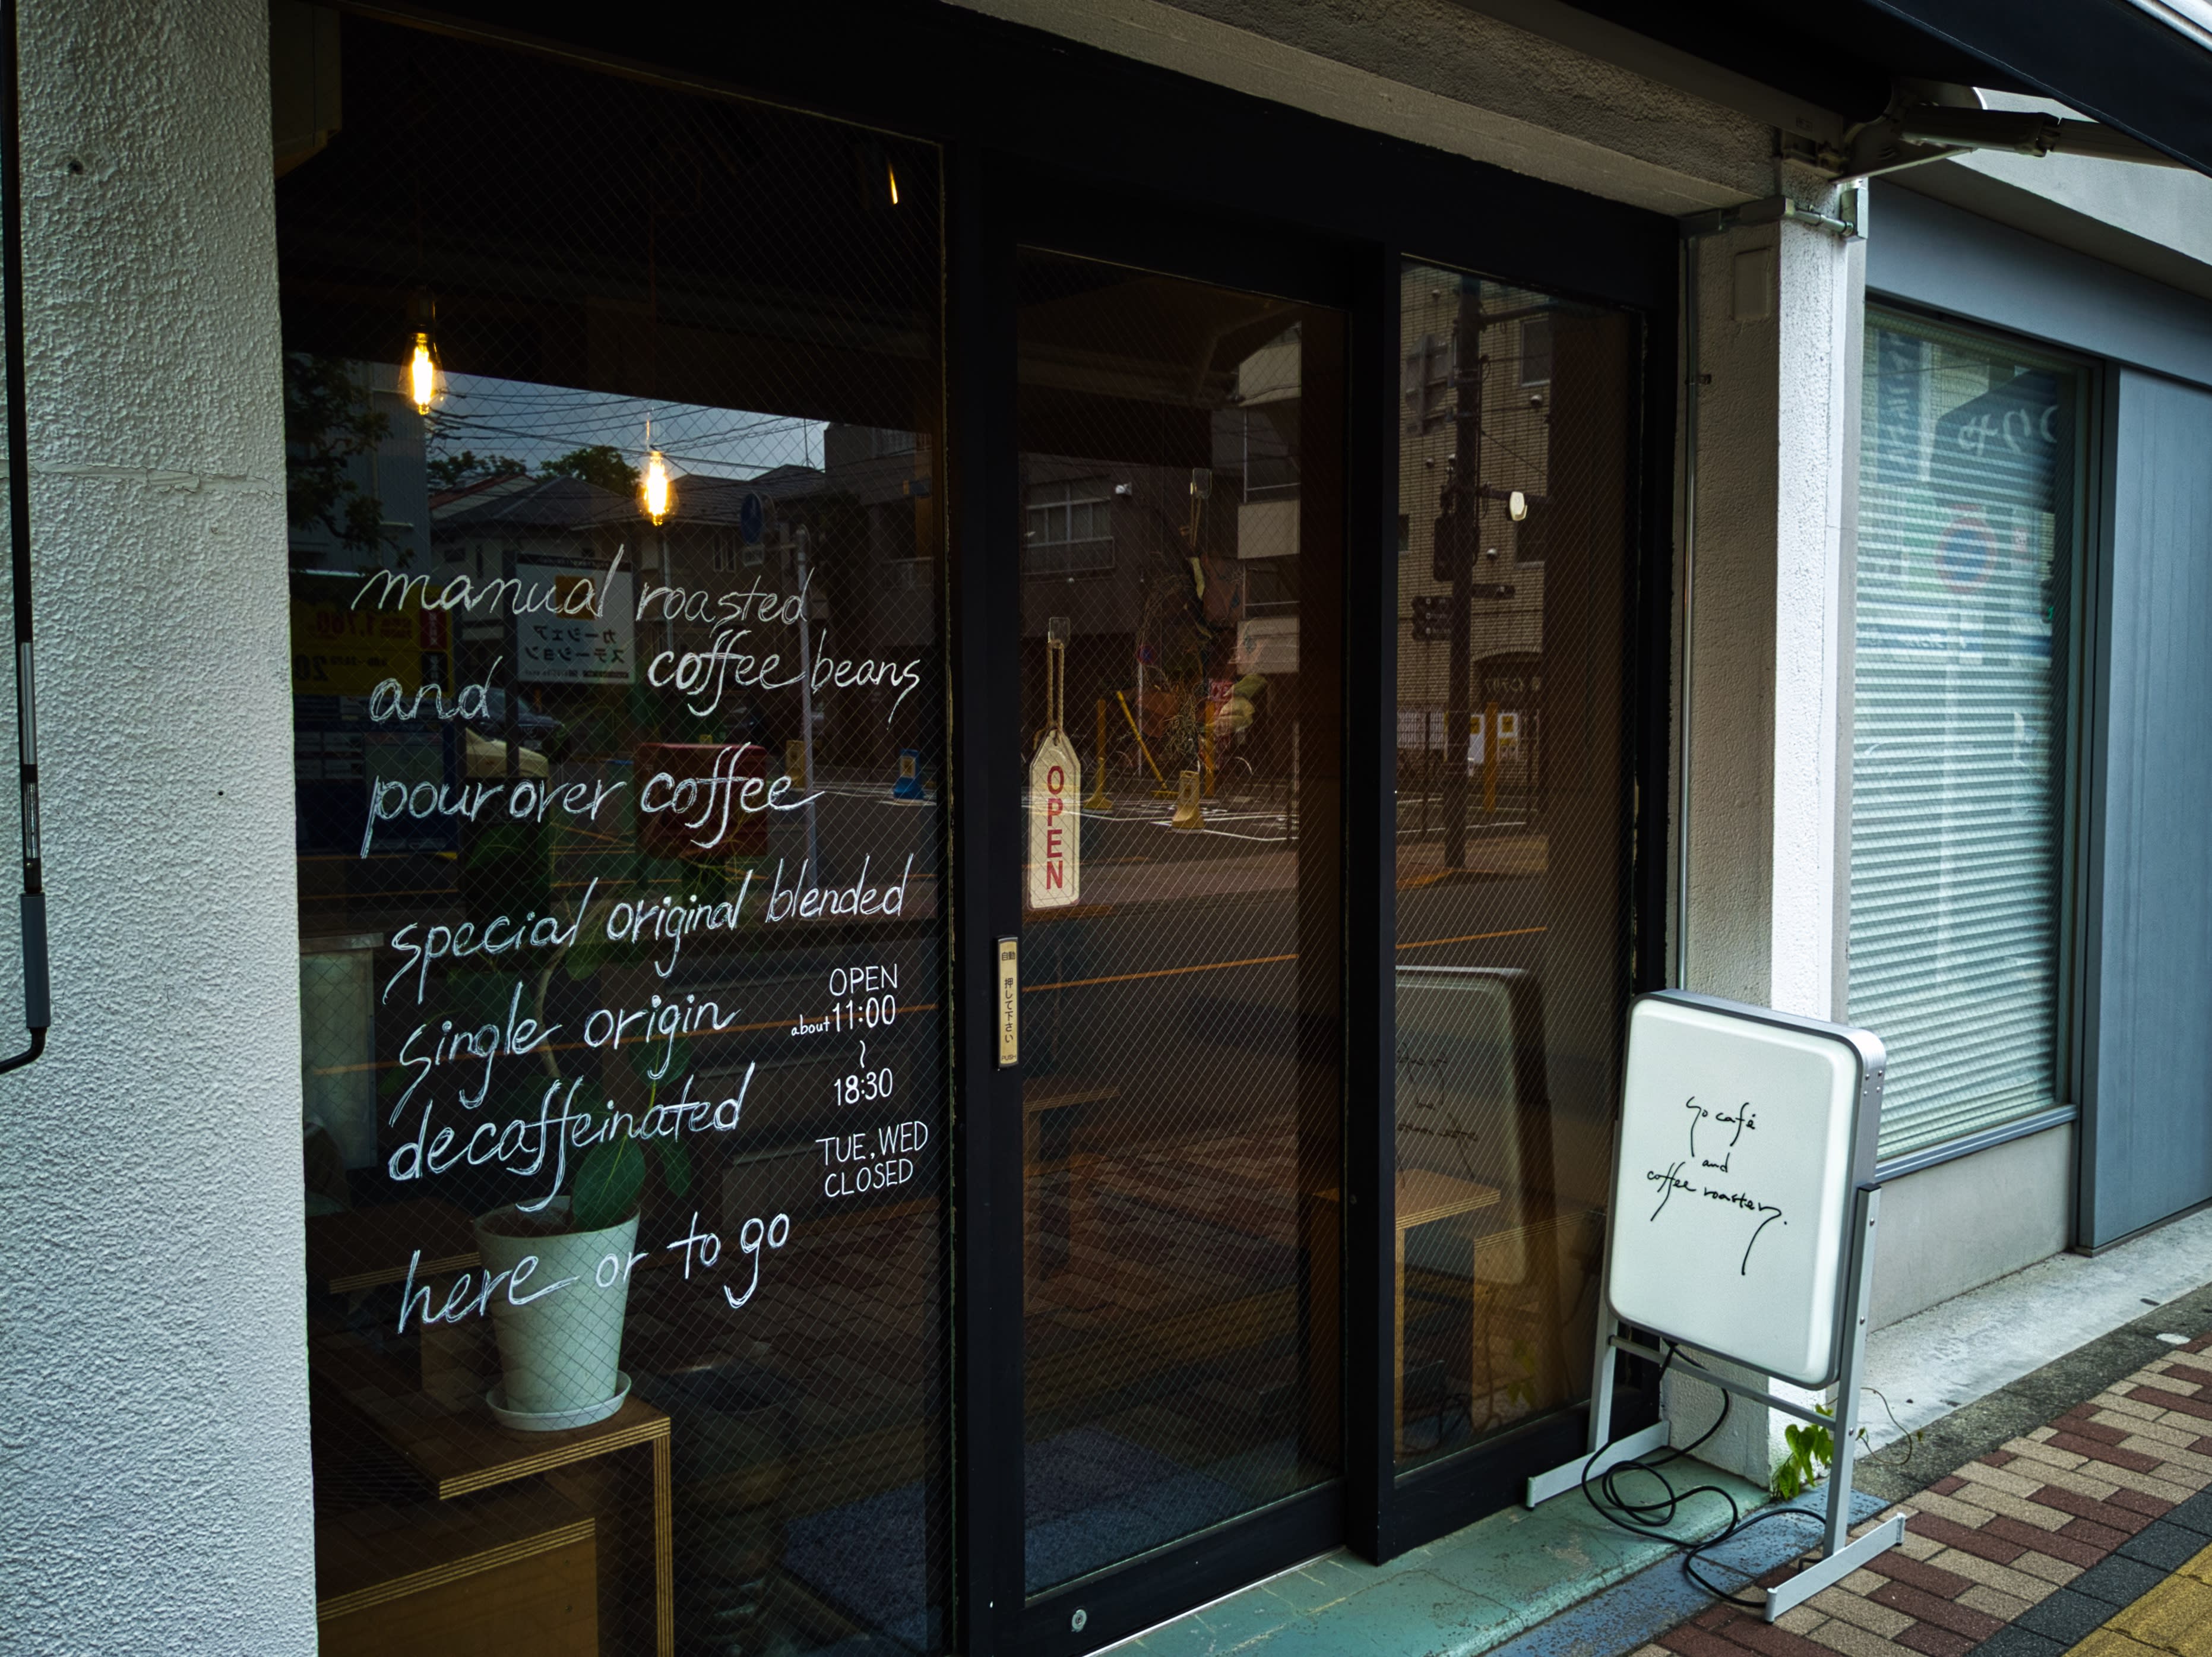 manual roasted
coffee beans
and
pour over coffee
special original blended
single origin
decaffeinated
here or to go
OPEN
about 11:00
~
18:30
TUE, WED
CLOSED
OPEN
自動
押して下さい
PUSH
カーシェア
ステーション
café
and
coffee roaster.